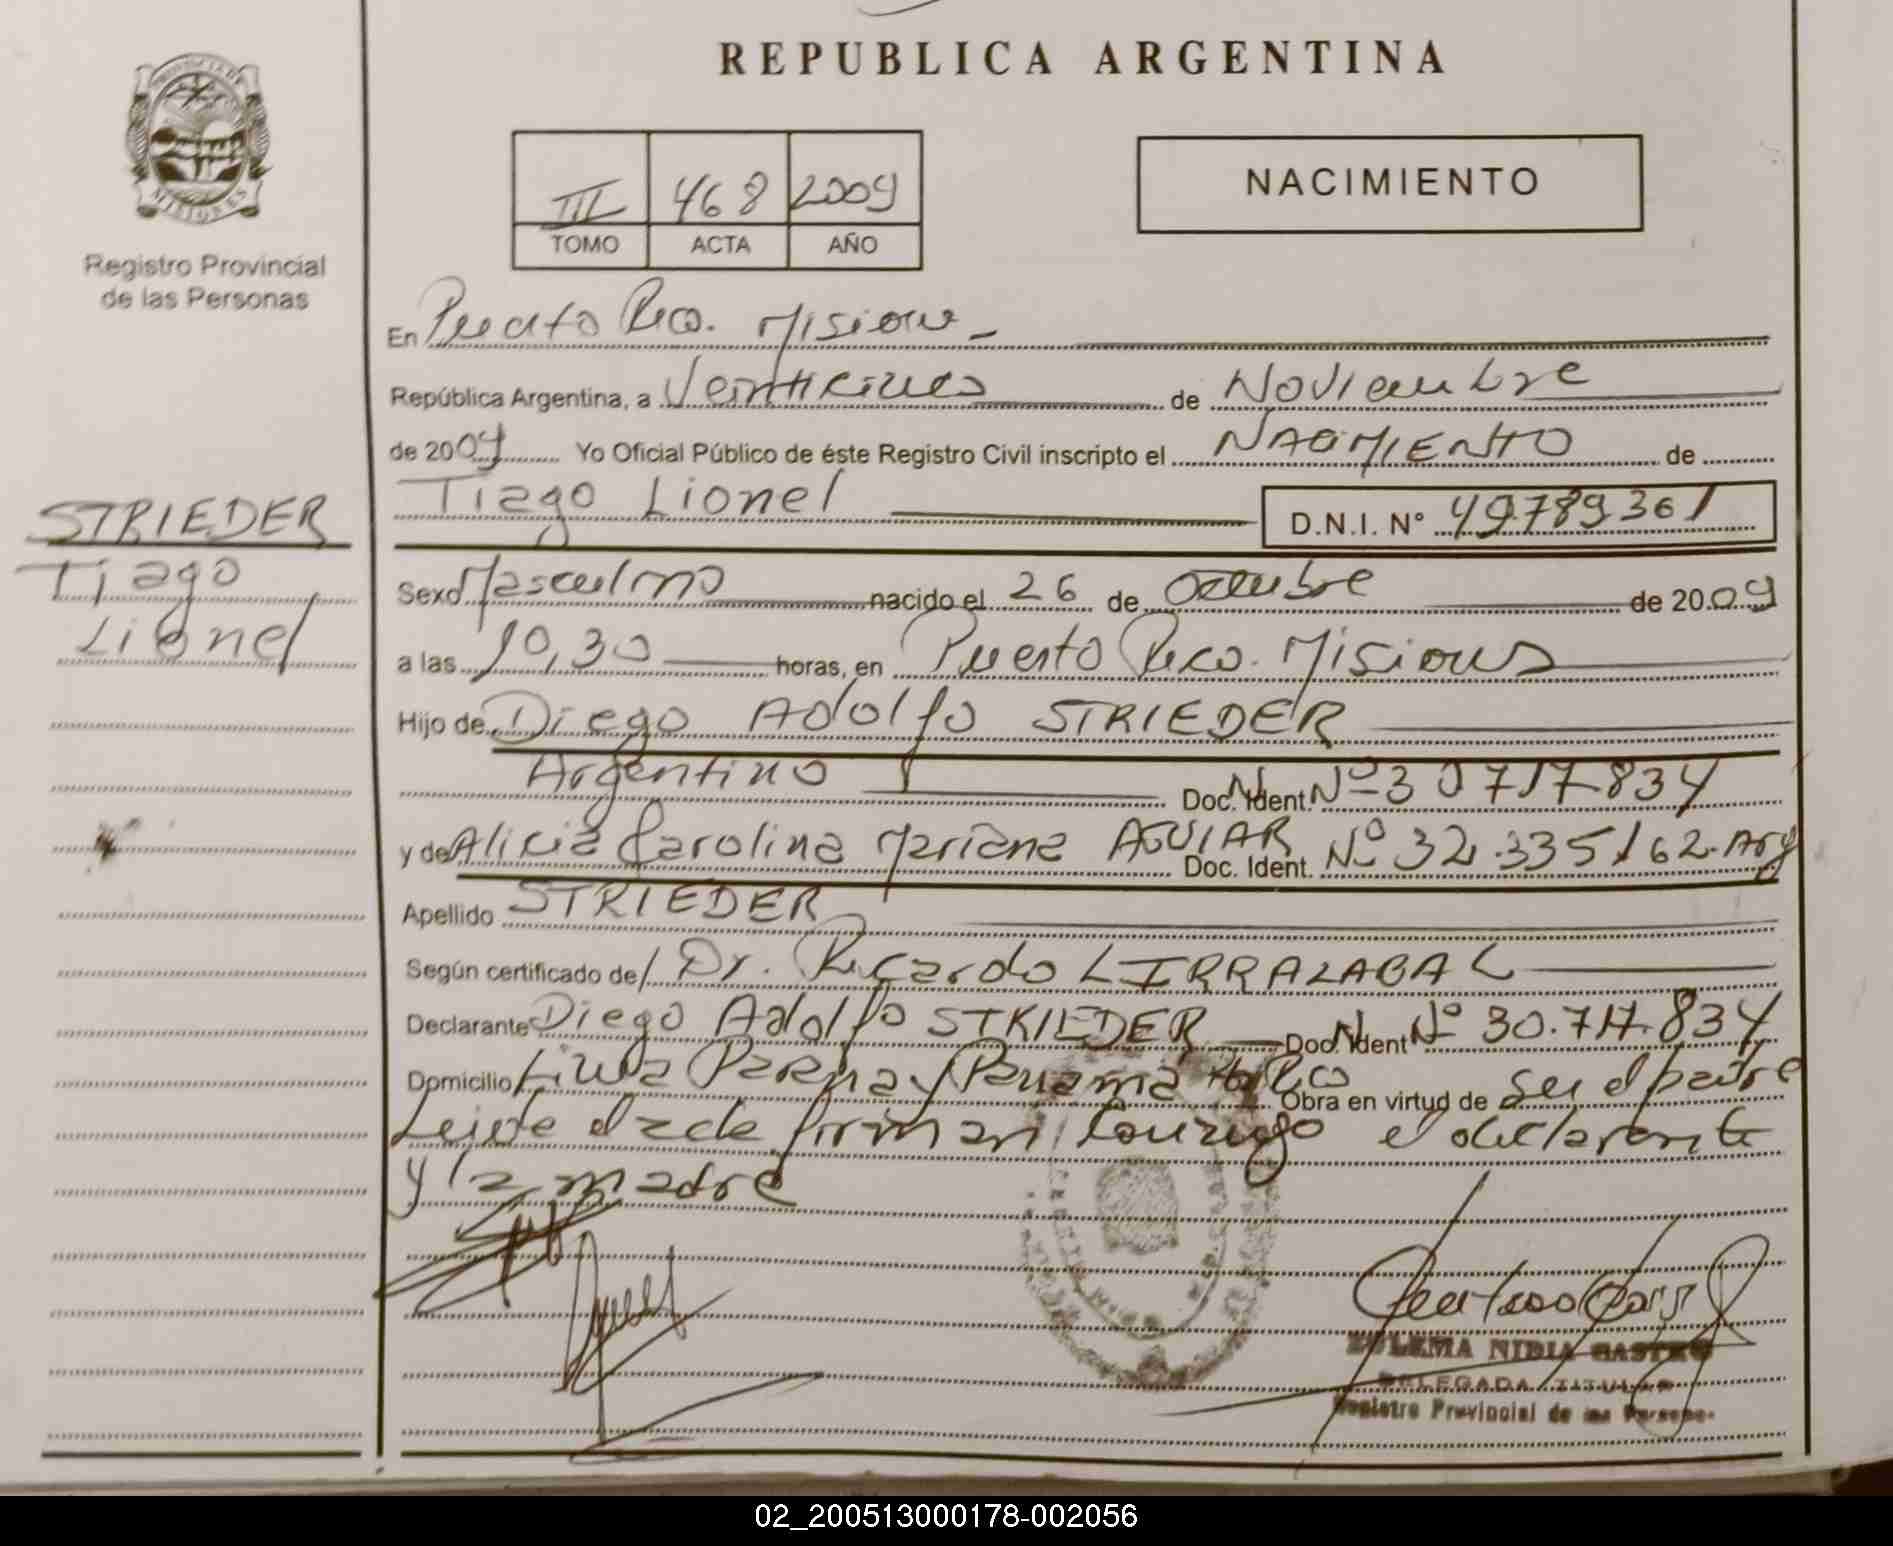 REPUBLICA ARGENTINA
PROVINCIA DE
MISIONES
Registro Provincial
de las Personas
III 468 2009
TOMO ACTA AÑO
NACIMIENTO
STRIEDER
Tiago
Lionel
En Puerto Rico. Misiones
República Argentina, a Veinticinco de Noviembre
de 2009 Yo Oficial Público de éste Registro Civil inscripto el NACIMIENTO de
Tiago Lionel D.N.I. N° 49.789.361
Sexo Masculino nacido el 26 de Octubre de 2009
a las 10,30 horas, en Puerto Rico. Misiones
Hijo de Diego Adolfo STRIEDER
Argentino Doc. Ident. N° 30.717.834
y de Alicia Carolina Mariana AGUIAR Doc. Ident. N° 32.335.162. Arg
Apellido STRIEDER
Según certificado de/ Dr. Ricardo LIRRALABAL
Declarante Diego Adolfo STRIEDER Doc. Ident N° 30.717.834
Domicilio y Panamá Pto Rico Obra en virtud de ser el padre
Leida el acta firman conmigo el declarante
y la madre
ZULEMA NIDIA CASTRO
DELEGADA TITULAR
Registro Provincial de las Personas
02_200513000178-002056